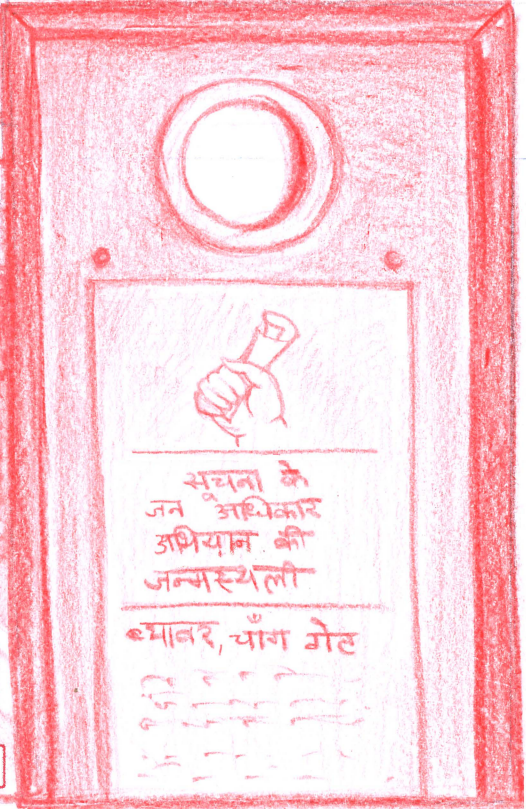 सूचना के
जन अधिकार
अभियान की
जन्मस्थली
ब्यावर, चाँग गेट